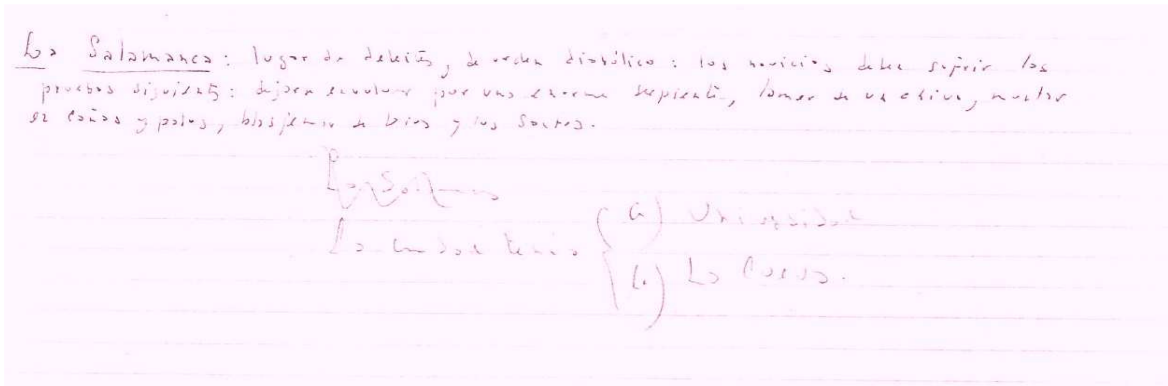 La Salamanca: lugar de deleites, de orden diabólico: los novicios debe sufrir las
pruebas siguientes: dejarse envolver por una enorme serpiente, de un chivo, montar
en cañas y palos, blasfemar de Dios y los Santos.
La ciudad tenía { a) Universidad
b) La Cueva.